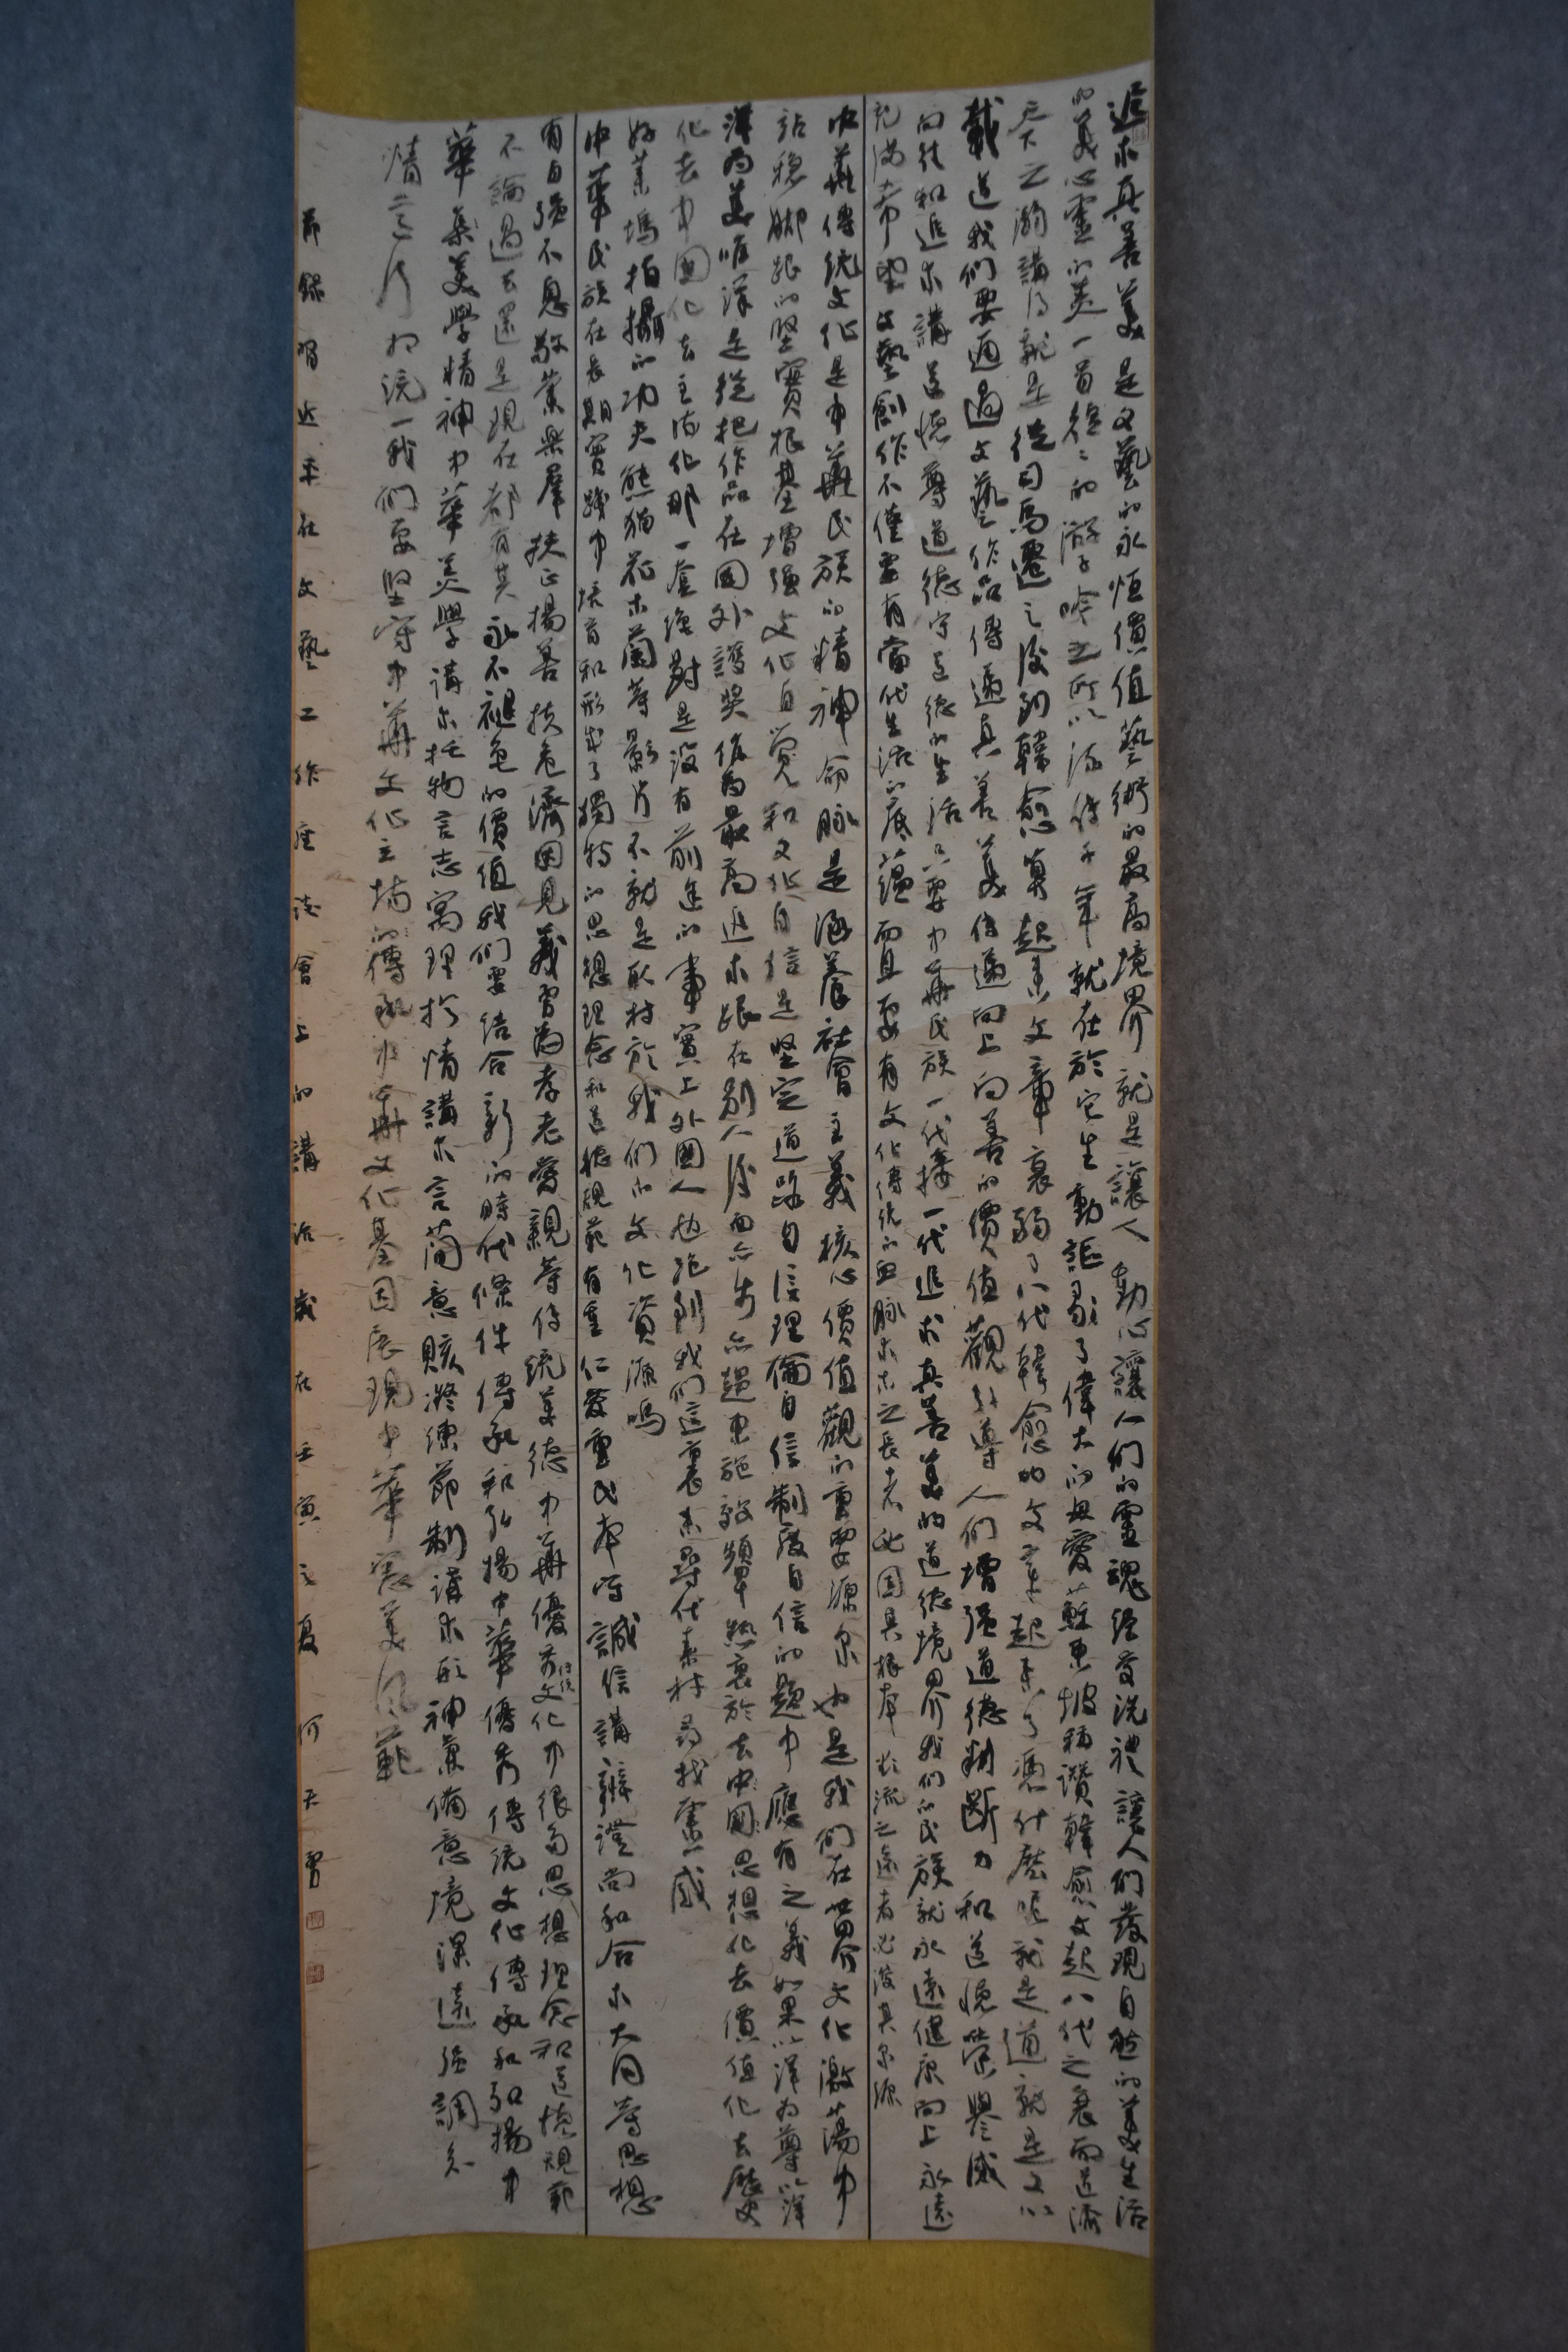 追求真善美是文藝的永恒價值藝術的最高境界就是讓人動心讓人們的靈魂經受洗禮讓人們發現自然的美生活
的美心靈的美一首短短的游子吟之所以流傳千年就在於它生動謳歌了偉大的母愛蘇東坡稱讚韓愈文起八代之衰而道濟
天下之溺講的就是從司馬遷之後到韓愈算起來文章衰弱了八代韓愈的文章起來了憑什麽呢就是道就是文以
載道我們要通過文藝作品傳遞真善美傳遞向上向善的價值觀引導人們增强道德判斷力和道德榮譽感
向往和追求講道德尊道德守道德的生活只要中華民族一代接一代追求真善美的道德境界我們的民族就永遠健康向上永遠
充滿希望文藝創作不僅要有當代生活的底藴而且要有文化傳統的血脉求木之長者必固其根本欲流之遠者必浚其泉源
中華傳統文化是中華民族的精神命脉是涵養社會主義核心價值觀的重要源泉也是我們在世界文化激蕩中
站穩脚跟的堅實根基增强文化自覺和文化自信是堅定道路自信理論自信制度自信的題中應有之義如果以洋为尊以洋
洋為美唯洋是從把作品在國外獲奬作為最高追求跟在别人後面亦步亦趨東施效顰熱衷於去中國思想化去價值化去歷史
化去中國化去主流化那一套絶對是没有前途的事實上外國人也跑到我們這裏来尋代素材尋找靈感
好莱塢拍攝的功夫熊猫花木蘭等影片不就是取材於我們的文化資源嗎
中華民族在長期實踐中培育和形成了獨特的思想理念和道德規範有重仁愛重民本守誠信講辯證尚和合求大同等思想
有自强不息敬業樂羣扶正揚善扶危濟困見義勇為孝老愛親等傳統美德中華優秀傳統文化中很多思想理念和道德規範
不論過去還是現在都有其永不褪色的價值我們要結合新的時代條件傳承和弘揚中華優秀傳統文化傳承和弘揚中
華美美學精神中華美學講求托物言志寓理於情講求言簡意賅凝練節制講求形神兼備意境深遠强調知
情意行相統一我們要堅守中華文化立場的傳承中華文化基因展現中華審美風範
節録習近平在文藝工作座談會上的講話歲在壬寅之夏何天勇